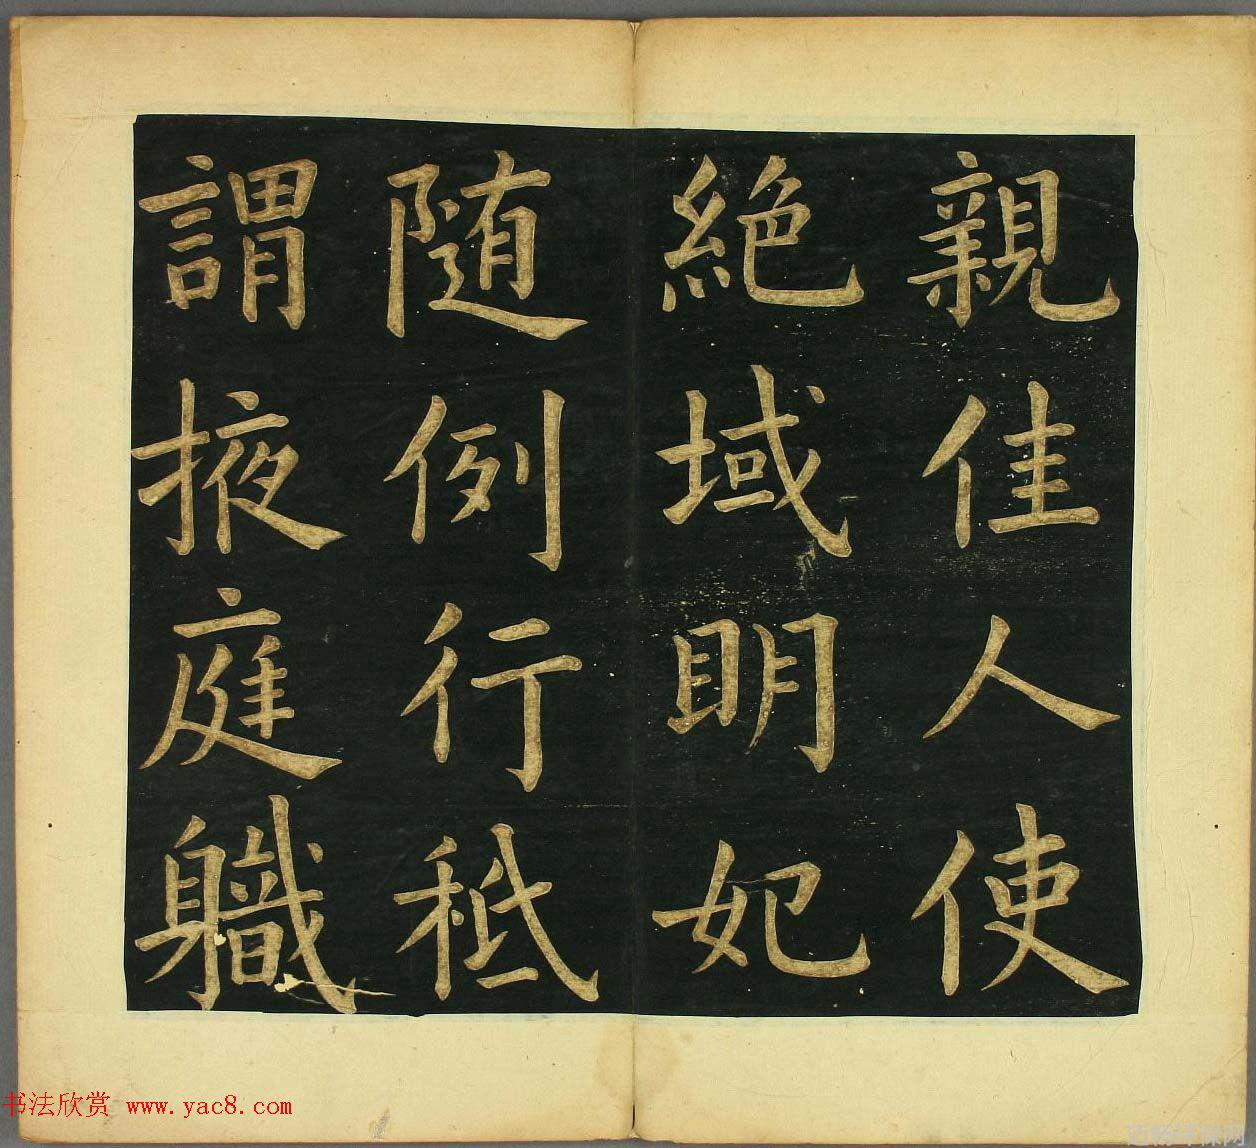 親佳人使
絶域明妃
随例行秪
謂掖庭軄
书法欣赏 www.yac8.com